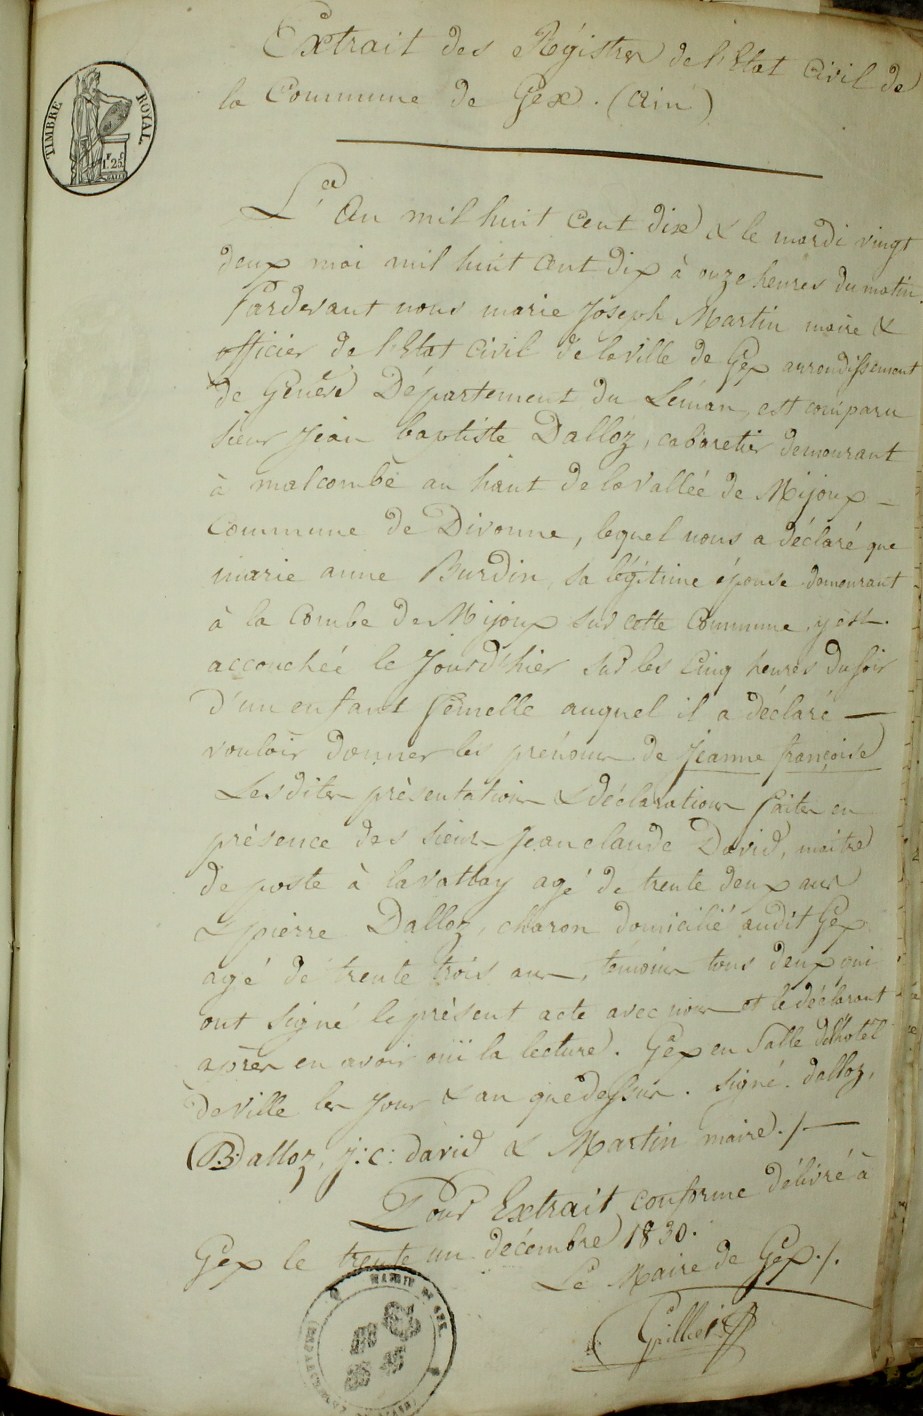 Extrait des Régistres de l'Etat civil de
la Commune de Gex. (Ain)
TIMBRE ROYAL
1F 25C
L'An mil huit cent dix & le mardi vingt
deux mai mil huit cent dix à onze heures du matin
Pardevant nous marie Joseph Martin maire &
officier de l'Etat civil de la ville de Gex arrondissement
de Genève Département du Léman, est comparu
sieur Jean baptiste Dalloz, cabaretier demeurant
à malcombe au haut de la vallée de Mijoux –
Commune de Divonne, lequel nous a déclaré que
marie anne Burdin, sa légitime épouse demeurant
à la Combe de Mijoux sur cette Commune, y est
accouchée le Jourd'hier sur les Cinq heures du soir
d'un enfant femelle auquel il a déclaré —
vouloir donner les prénoms de Jeanne françoise
Les dites présentation & déclaration faites en
présence des sieurs Jean claude David, maître
de poste à lavattay agé de trente deux ans
& pierre Dalloz, charon domicilié audit Gex
agé de trente trois ans, temoins tous deux qui
ont signé le présent acte avec nous et le déclarant
après en avoir ouï la lecture. Gex en Salle de l'hotel
de ville les jour & an que dessus. Signé. dalloz,
B Dalloz, j: c: david & Martin maire./—
Pour Extrait conforme délivré à
Gex le trente un décembre 1830.
Le Maire de Gex./.
MAIRIE DE GEX